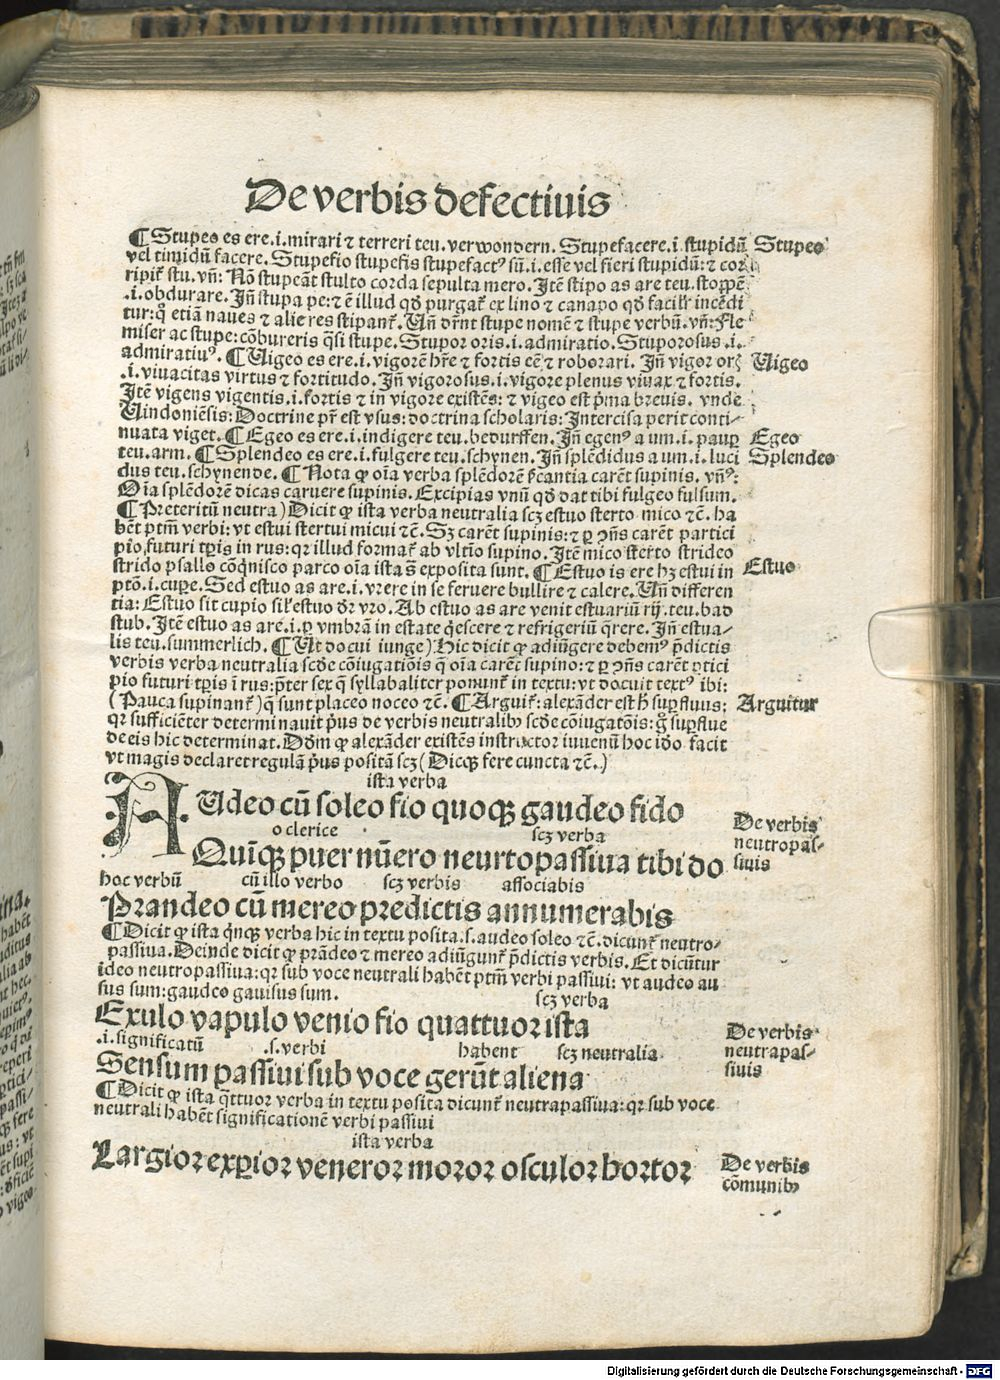 De verbis defectiuis
¶ Stupeo es ere .i. mirari ⁊ terreri teu. verwondern. Stupefacere .i. stupidū Stupeo
vel timidū facere. Stupefio stupefis stupefactꝰ sū .i. esse vel fieri stupidū: ⁊ cor
ripit᷑ stu. vn̄: Nō stupeāt stulto corda sepulta mero. Itē stipo as are teu. stoppē
.i. obdurare. Jn̄ stupa pe: ⁊ ē illud qd̄ purgat᷑ ex lino ⁊ canapo qd̄ facilr̄ incēdi
tur: qꝫ etiā naues ⁊ alie res stipant᷑. Vn̄ dr̄nt stupe nomē ⁊ stupe verbū. vn̄: Fle
miser ac stupe: cōbureris q̄si stupe. Stupor oris .i. admiratio. Stuporosus .i.
admiratiuꝰ. ¶ Uigeo es ere .i. vigorē hr̄e ⁊ fortis eē ⁊ roborari. Jn̄ vigor orꝭ Uigeo
.i. viuacitas virtus ⁊ fortitudo. Jn̄ vigorosus .i. vigore plenus viuax ⁊ fortis.
Itē vigens vigentis .i. fortis ⁊ in vigore existēs: ⁊ vigeo est p̄ma breuis. vnde
Uindoniēsis: Doctrine pr̄ est vsus: doctrina scholaris: Intercisa perit conti-
nuata viget. ¶ Egeo es ere .i. indigere teu. bedurffen. Jn̄ egenꝰ a um .i. paup̄ Egeo
teu. arm. ¶ Splendeo es ere .i. fulgere teu. schynen. Jn̄ splēdidus a um .i. luci Splendeo
dus teu. schynende. ¶ Nota ꝙ oīa verba splēdorē sꝭcantia carēt supinis. vn̄ꝰ:
Oīa splēdorē dicas caruere supinis. Excipias vnū qd̄ dat tibi fulgeo fulsum.
¶ Preteritū neutra) Dicit ꝙ ista verba neutralia scꝫ estuo sterto mico ⁊c̄. ha
bēt p̄tm̄ verbi: vt estui stertui micui ⁊c̄. Sꝫ carēt supinis: ⁊ ꝑ ꝯn̄s carēt partici
pio futuri tꝑis in rus: qꝛ illud format᷑ ab vltīo supino. Itē mico sterto strideo
strido psallo cōq̄nisco parco oīa ista s̄ exposita sunt. ¶ Estuo is ere hꝫ estui in Estuo
ptō .i. cupe. Sed estuo as are .i. vrere in se feruere bullire ⁊ calere. Vn̄ differen
tia: Estuo sit cupio sil᷑ estuo dr̄ vro. Ab estuo as are venit estuariū rij. teu. bad
stub. Itē estuo as are .i. ꝑ vmbrā in estate q̄escere ⁊ refrigeriū q̄rere. Jn̄ estua-
lis teu. summerlich. ¶ Ut docui iunge) Hic dicit ꝙ adiūgere debemꝰ p̄dictis
verbis verba neutralia scd̄e cōiugatiōis q̄ oīa carēt supino: ⁊ ꝑ ꝯn̄s carēt ꝑtici
pio futuri tꝑis ī rus: p̄ter sex q̄ syllabaliter ponunt᷑ in textu: vt docuit textꝰ ibi:
(Pauca supinant᷑) q̄ sunt placeo noceo ⁊c̄. ¶ Arguit᷑: alexāder est h̄ suꝑfluus: Arguitur
qꝛ sufficiēter determinauit p̄us de verbis neutralibꝫ scd̄e cōiugatōis: g̊ suꝑflue
de eis hic determinat. Dd̄m ꝙ alexāder existēs instructor iuuenū hoc ido facit
vt magis declaret regulā p̄us positā scꝫ (Dicqꝫ fere cuncta ⁊c̄.)
ista verba
AUdeo cū soleo fio quoqꝫ gaudeo fido
o clerice scꝫ verba
Quīqꝫ puer nūero neurtopassiua tibi do
De verbis
neutropas-
siuis
hoc verbū cū illo verbo scꝫ verbis associabis
Prandeo cū mereo predictis annumerabis
¶ Dicit ꝙ ista q̄nqꝫ verba hic in textu posita .s. audeo soleo ⁊c̄. dicunt᷑ neutro-
passiua. Deinde dicit ꝙ prādeo ⁊ mereo adiūgunt᷑ p̄dictis verbis. Et dicūtur
ideo neutropassiua: qꝛ sub voce neutrali habēt p̄tm̄ verbi passiui: vt audeo au
sus sum: gaudeo gauisus sum.
scꝫ verba
Exulo vapulo venio fio quattuor ista
.i. significatū .s. verbi habent scꝫ neutralia
Sensum passiui sub voce gerūt aliena
De verbis
neutrapas-
siuis
¶ Dicit ꝙ ista q̄ttuor verba in textu posita dicunt᷑ neutrapassiua: qꝛ sub voce
neutrali habēt significationē verbi passiui
ista verba
Largior exꝑior veneror moror osculor hortor
De verbis
cōmunibꝫ
Digitalisierung gefördert durch die Deutsche Forschungsgemeinschaft - DFG